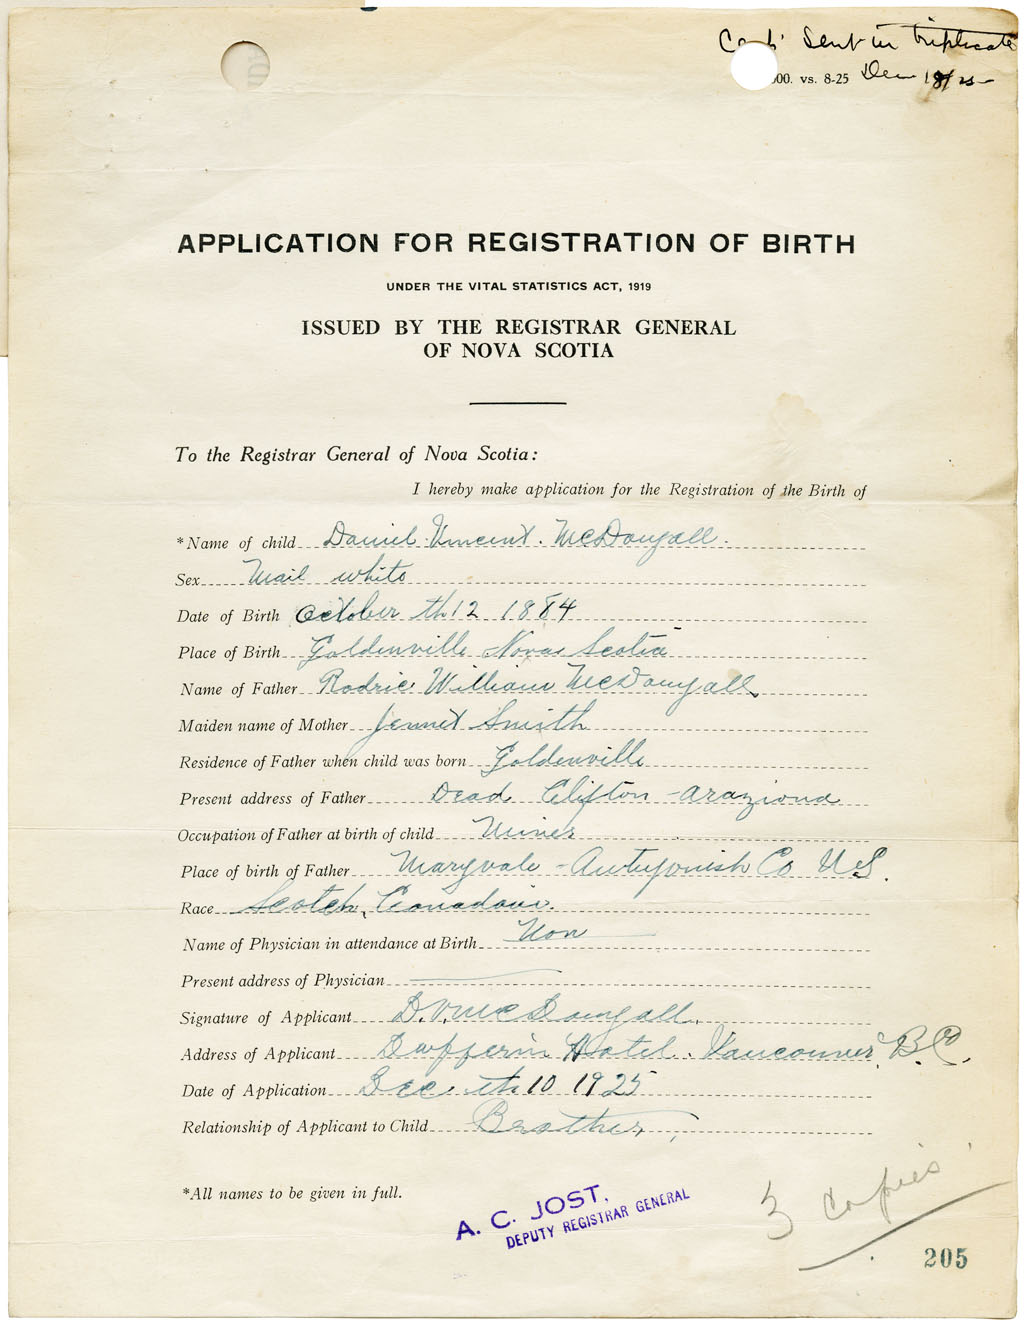 Sent in triplicate
00. vs. 8-25 Dec 18/25
APPLICATION FOR REGISTRATION OF BIRTH
UNDER THE VITAL STATISTICS ACT, 1919
ISSUED BY THE REGISTRAR GENERAL
OF NOVA SCOTIA
To the Registrar General of Nova Scotia:
I hereby make application for the Registration of the Birth of
*Name of child Daniel Vincent. McDougall.
Sex Mail white
Date of Birth October th 12 1884
Place of Birth Goldenville Nova Scotia
Name of Father Rodric William McDougall
Maiden name of Mother Jennet Smith
Residence of Father when child was born Goldenville
Present address of Father Dead Clifton - Araziona
Occupation of Father at birth of child Miner
Place of birth of Father Maryvale - Antigonish Co N.S.
Race Scotch, Canadain.
Name of Physician in attendance at Birth Non
Present address of Physician
Signature of Applicant D.V. McDougall,
Address of Applicant Dufferin Hotel. Vancouver, B.C.
Date of Application Dec th 10 1925
Relationship of Applicant to Child Brother,
*All names to be given in full.
A. C. JOST.
DEPUTY REGISTRAR GENERAL
3 Copies
205